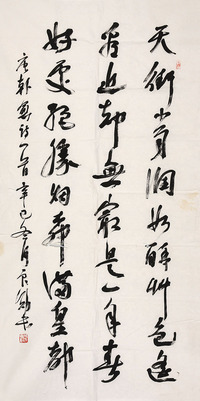 天街小雨润如酥草色遥
看近却无最是一年春
好处绝胜烟柳满皇都
唐韩愈诗一首辛巳冬月